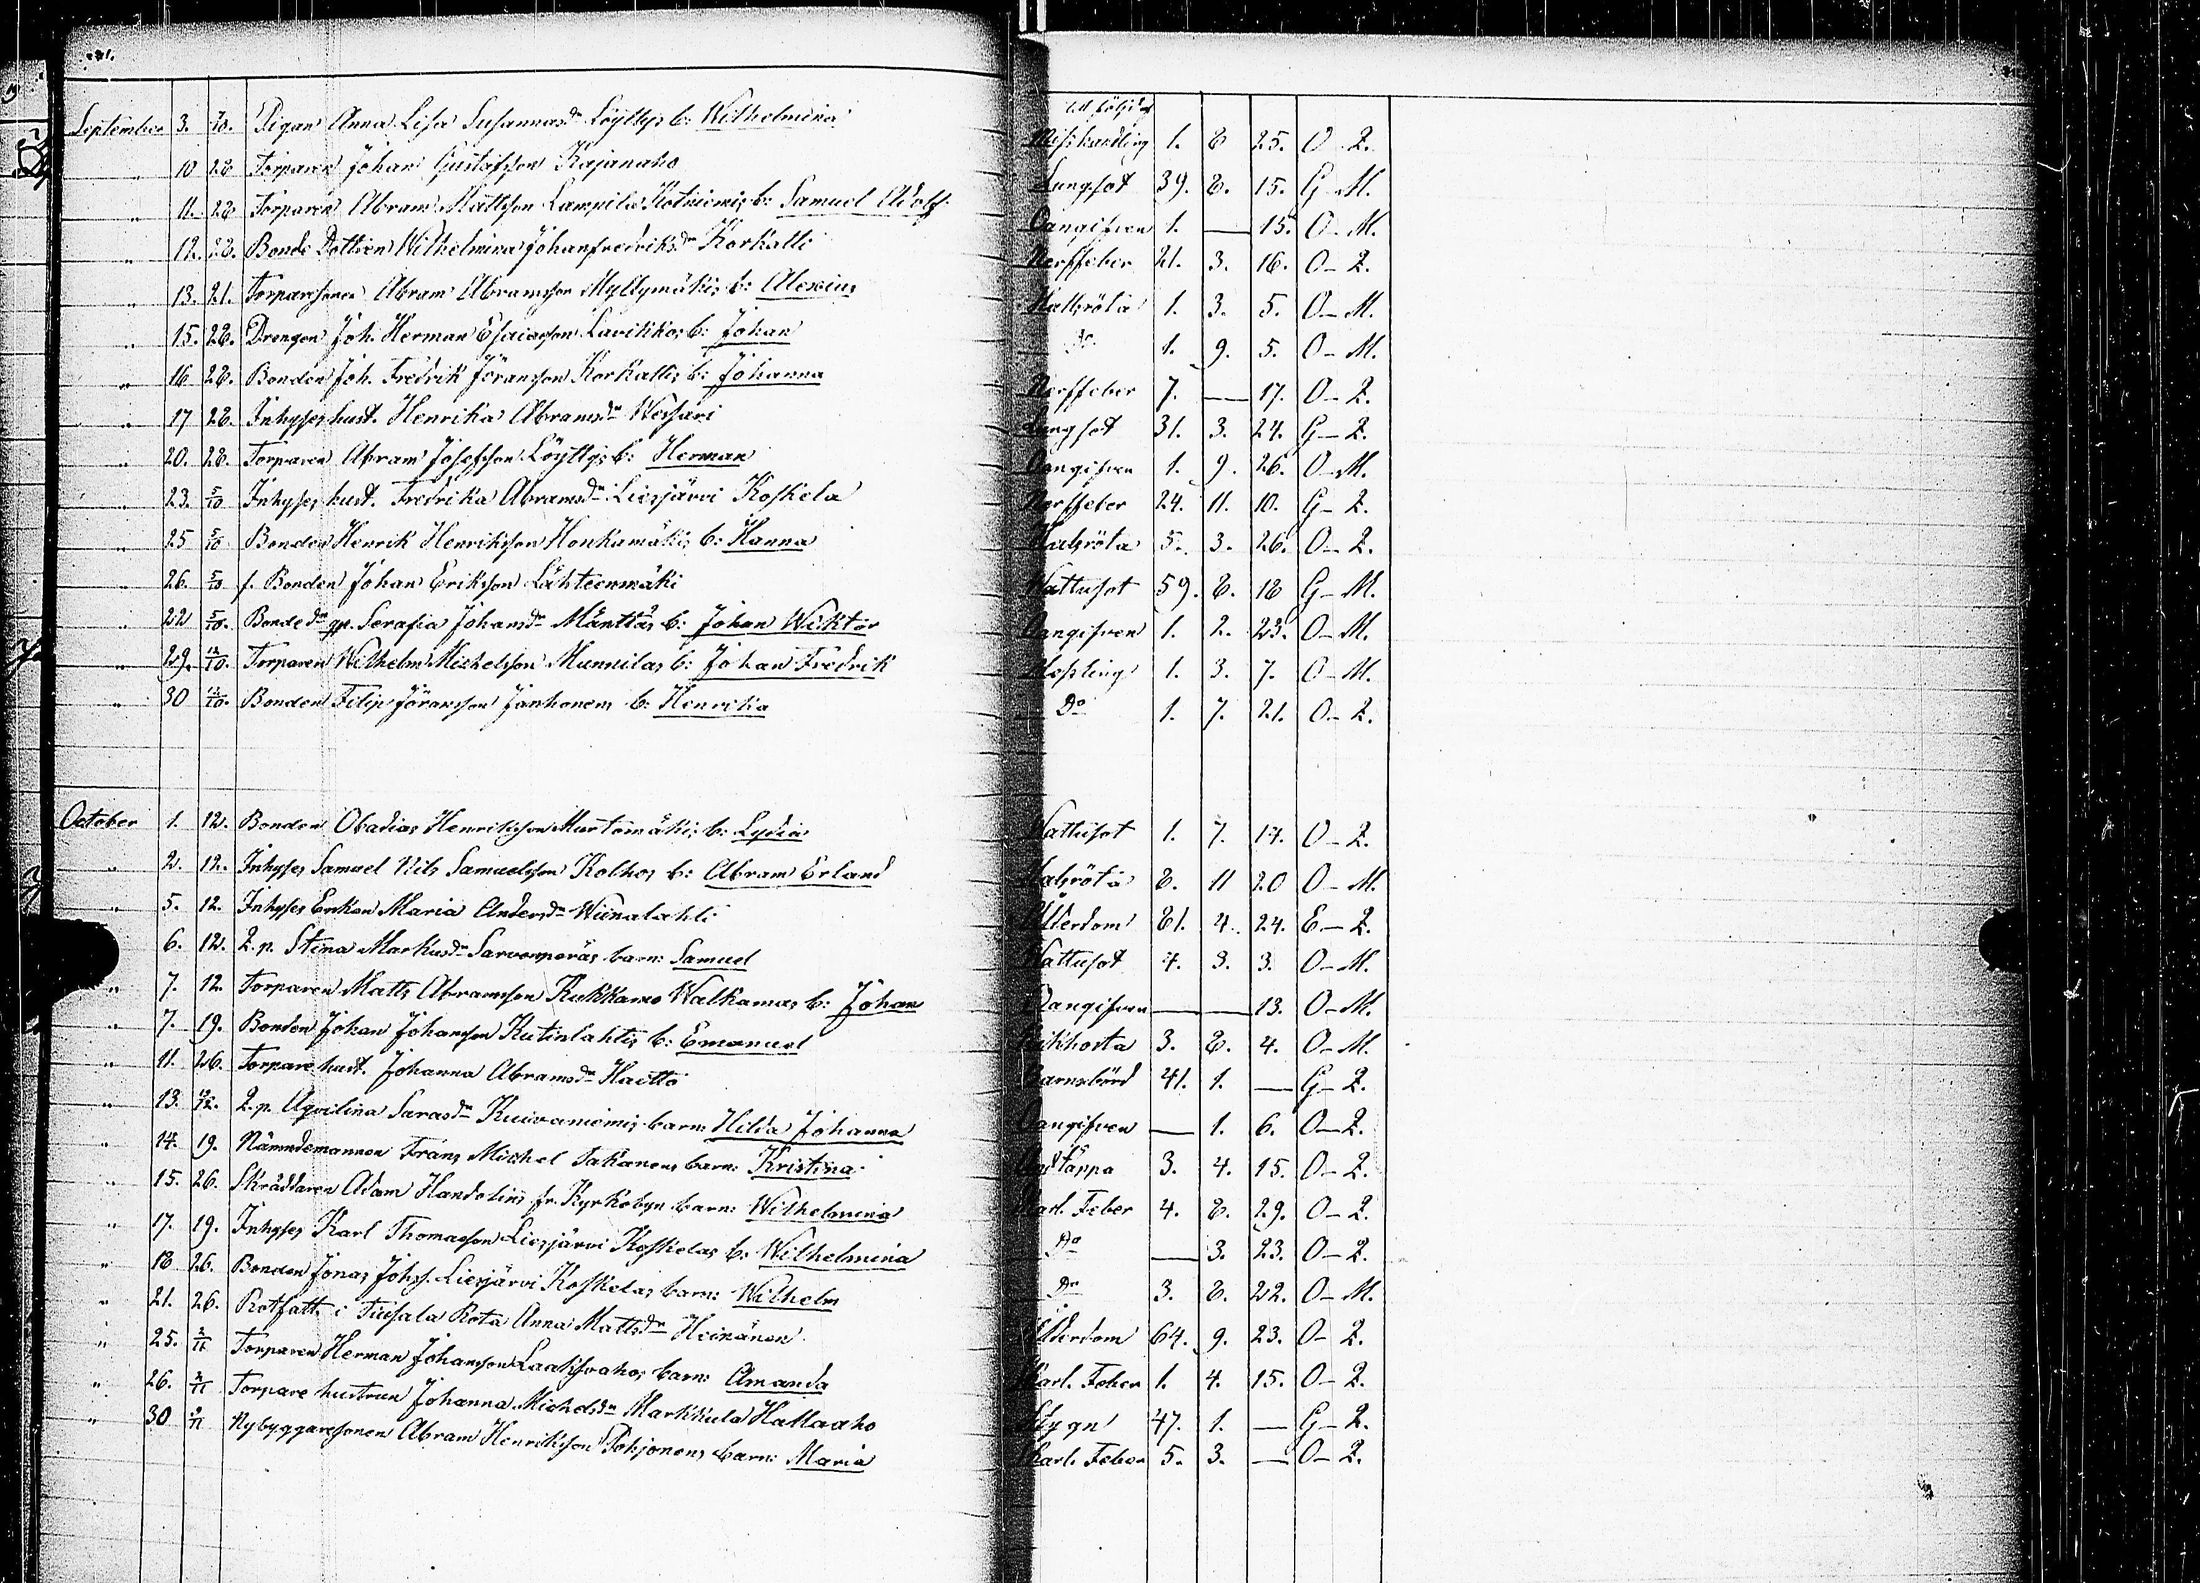 September 3. 5/10. Pigan Anna Lisa Susannasdr Löyttys b: Wilhelmina till följd af Misshandling 1. 8 25. O - Q.
" 10 28 Torparen Johan Gustafsson Kajanaho Lungsot 39. 8. 15. G - M.
" 11. 28 Torparen Abram Mattsson Lampila Kotniemis b: Samuel Adolf Oangifven 1. — 15. O - M.
" 12. 28. Bonde Dottren Wilhelmina Johanfredriksdr Korkatti Nerffeber 21. 3. 16. O - Q.
" 13. 21. Torparesonen Abram Abramsson Myllymäkis b: Alexius Halsröta 1. 3. 5. O - M.
" 15. 28. Drengen Joh. Herman Esaiasson Lavikkos b: Johan Do 1. 9. 5. O - M.
" 16 28. Bonden Joh. Fredrik Jöransson Korkattis b: Johanna Nerffeber 7. — 17. O - Q.
" 17 28. Inhyses hust. Henrika Abramsdr Wessari Lungsot 31. 3. 24. G - Q.
" 20. 28. Torparen Abram Josefsson Löyttys b: Herman Oangifven 1. 9. 26. O - M.
" 23. 5/10 Inhyses hust. Fredrika Abramsdr Liesjärvi Koskela Nerffeber 24. 11. 10. G - Q.
" 25 5/10 Bonden Henrik Henriksson Honkamäkis b: Hanna Halsröta 5. 3. 26. O - Q.
" 26. 5/10 f. Bonden Johan Eriksson Lähteenmäki Wattusot 59. 8. 18 G - M.
" 22 5/10. Bondedr qp. Serafia Johansdr Mänttäs b: Johan Wicktor Oangifven 1. 2. 23. O - M.
" 29. 12/10. Torparen Wilhelm Michelsson Munnilas b: Johan Fredrik Messling 1. 3. 7. O - M.
" 30 12/10. Bonden Filip Jöransson Janhonens b: Henrika Do 1. 7. 21. O - Q.
October 1. 12. Bonden Obadias Henriksson Murtomäkis b: Lydia Wattusot 1. 7. 17. O - Q.
" 2. 12. Inhyses Samuel Nils Samuelsson Kolhos b: Abram Erland Halsröta 8. 11 20 O - M.
" 5. 12. Inhyses Enkan Maria Andersdr Wiinalahti Ålderdom 81. 4. 24. E - Q.
6. 12. Q.p. Stina Markusdr Sarvenperäs barn: Samuel Wattusot 4. 3. 3. O - M.
" 7. 12. Torparen Matts Abramsson Kukkamo Walkamas b: Johan Oangifven — — 13. O - M.
" 7. 19. Bonden Johan Johansson Kutinlahtis b: Emanuel Kikhosta 3. 8. 4. O - M.
" 11. 26. Torpare hust. Johanna Abramsdr Haitto Barnsbörd 41. 1. — G - Q.
" 13. Q.p. Aqvilina Sarasdr Kuivaniemis barn: Hilda Johanna Oangifven — 1. 6. O - Q.
" 14. 19. Nämndemannen Frans Michel Takanens barn: Kristina Andtäppa 3. 4. 15. O - Q.
" 15. 26. Skräddaren Adam Handolins fr. Kyrkobyn barn: Wilhelmina Skarl. Feber 4. 8. 29. O - Q.
" 17. 19. Inhyses Karl Thomasson Liesjärvi Koskelas b: Wilhelmina Do — 3. 23. O - Q.
" 18 26. Bonden Jonas Johss. Liesjärvi Koskelas barn: Wilhelm Do 3. 8. 22. O - M.
" 21. 26. Rotfatt. i Tuisala Rota Anna Mattsdr Heinänen Ålderdom 64. 9. 23. O - Q.
" 25. 2/11 Torparen Herman Johansson Laaksoahos barn: Amanda Skarl. Feber 1. 4. 15. O - Q.
" 26. 2/11 Torpare hustrun Johanna Michelsdr Markkula Hallaaho Stygn 47. 1. — G - Q.
" 30 Nybyggaresonen Abram Henriksson Pohjonens barn: Maria Skarl. Feber 5. 3. — O - Q.